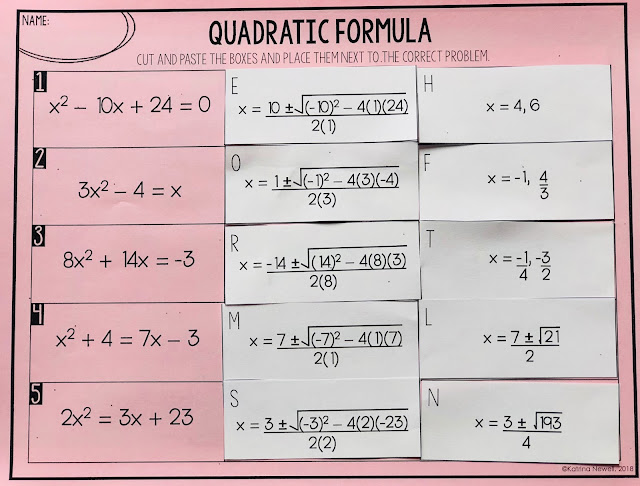 NAME:
QUADRATIC FORMULA
CUT AND PASTE THE BOXES AND PLACE THEM NEXT TO THE CORRECT PROBLEM.
1
x² − 10x + 24 = 0
E
x = 10 ±√(-10)² − 4(1)(24)
2(1)
H
x = 4, 6
2
3x² − 4 = x
O
x = 1 ±√(-1)² − 4(3)(-4)
2(3)
F
x = -1, 4/3
3
8x² + 14x = -3
R
x = -14 ±√(14)² − 4(8)(3)
2(8)
T
x = -1/4, -3/2
4
x² + 4 = 7x − 3
M
x = 7 ±√(-7)² − 4(1)(7)
2(1)
L
x = 7 ± √21
2
5
2x² = 3x + 23
S
x = 3 ±√(-3)² − 4(2)(-23)
2(2)
N
x = 3 ± √193
4
©Katrina Newell, 2018